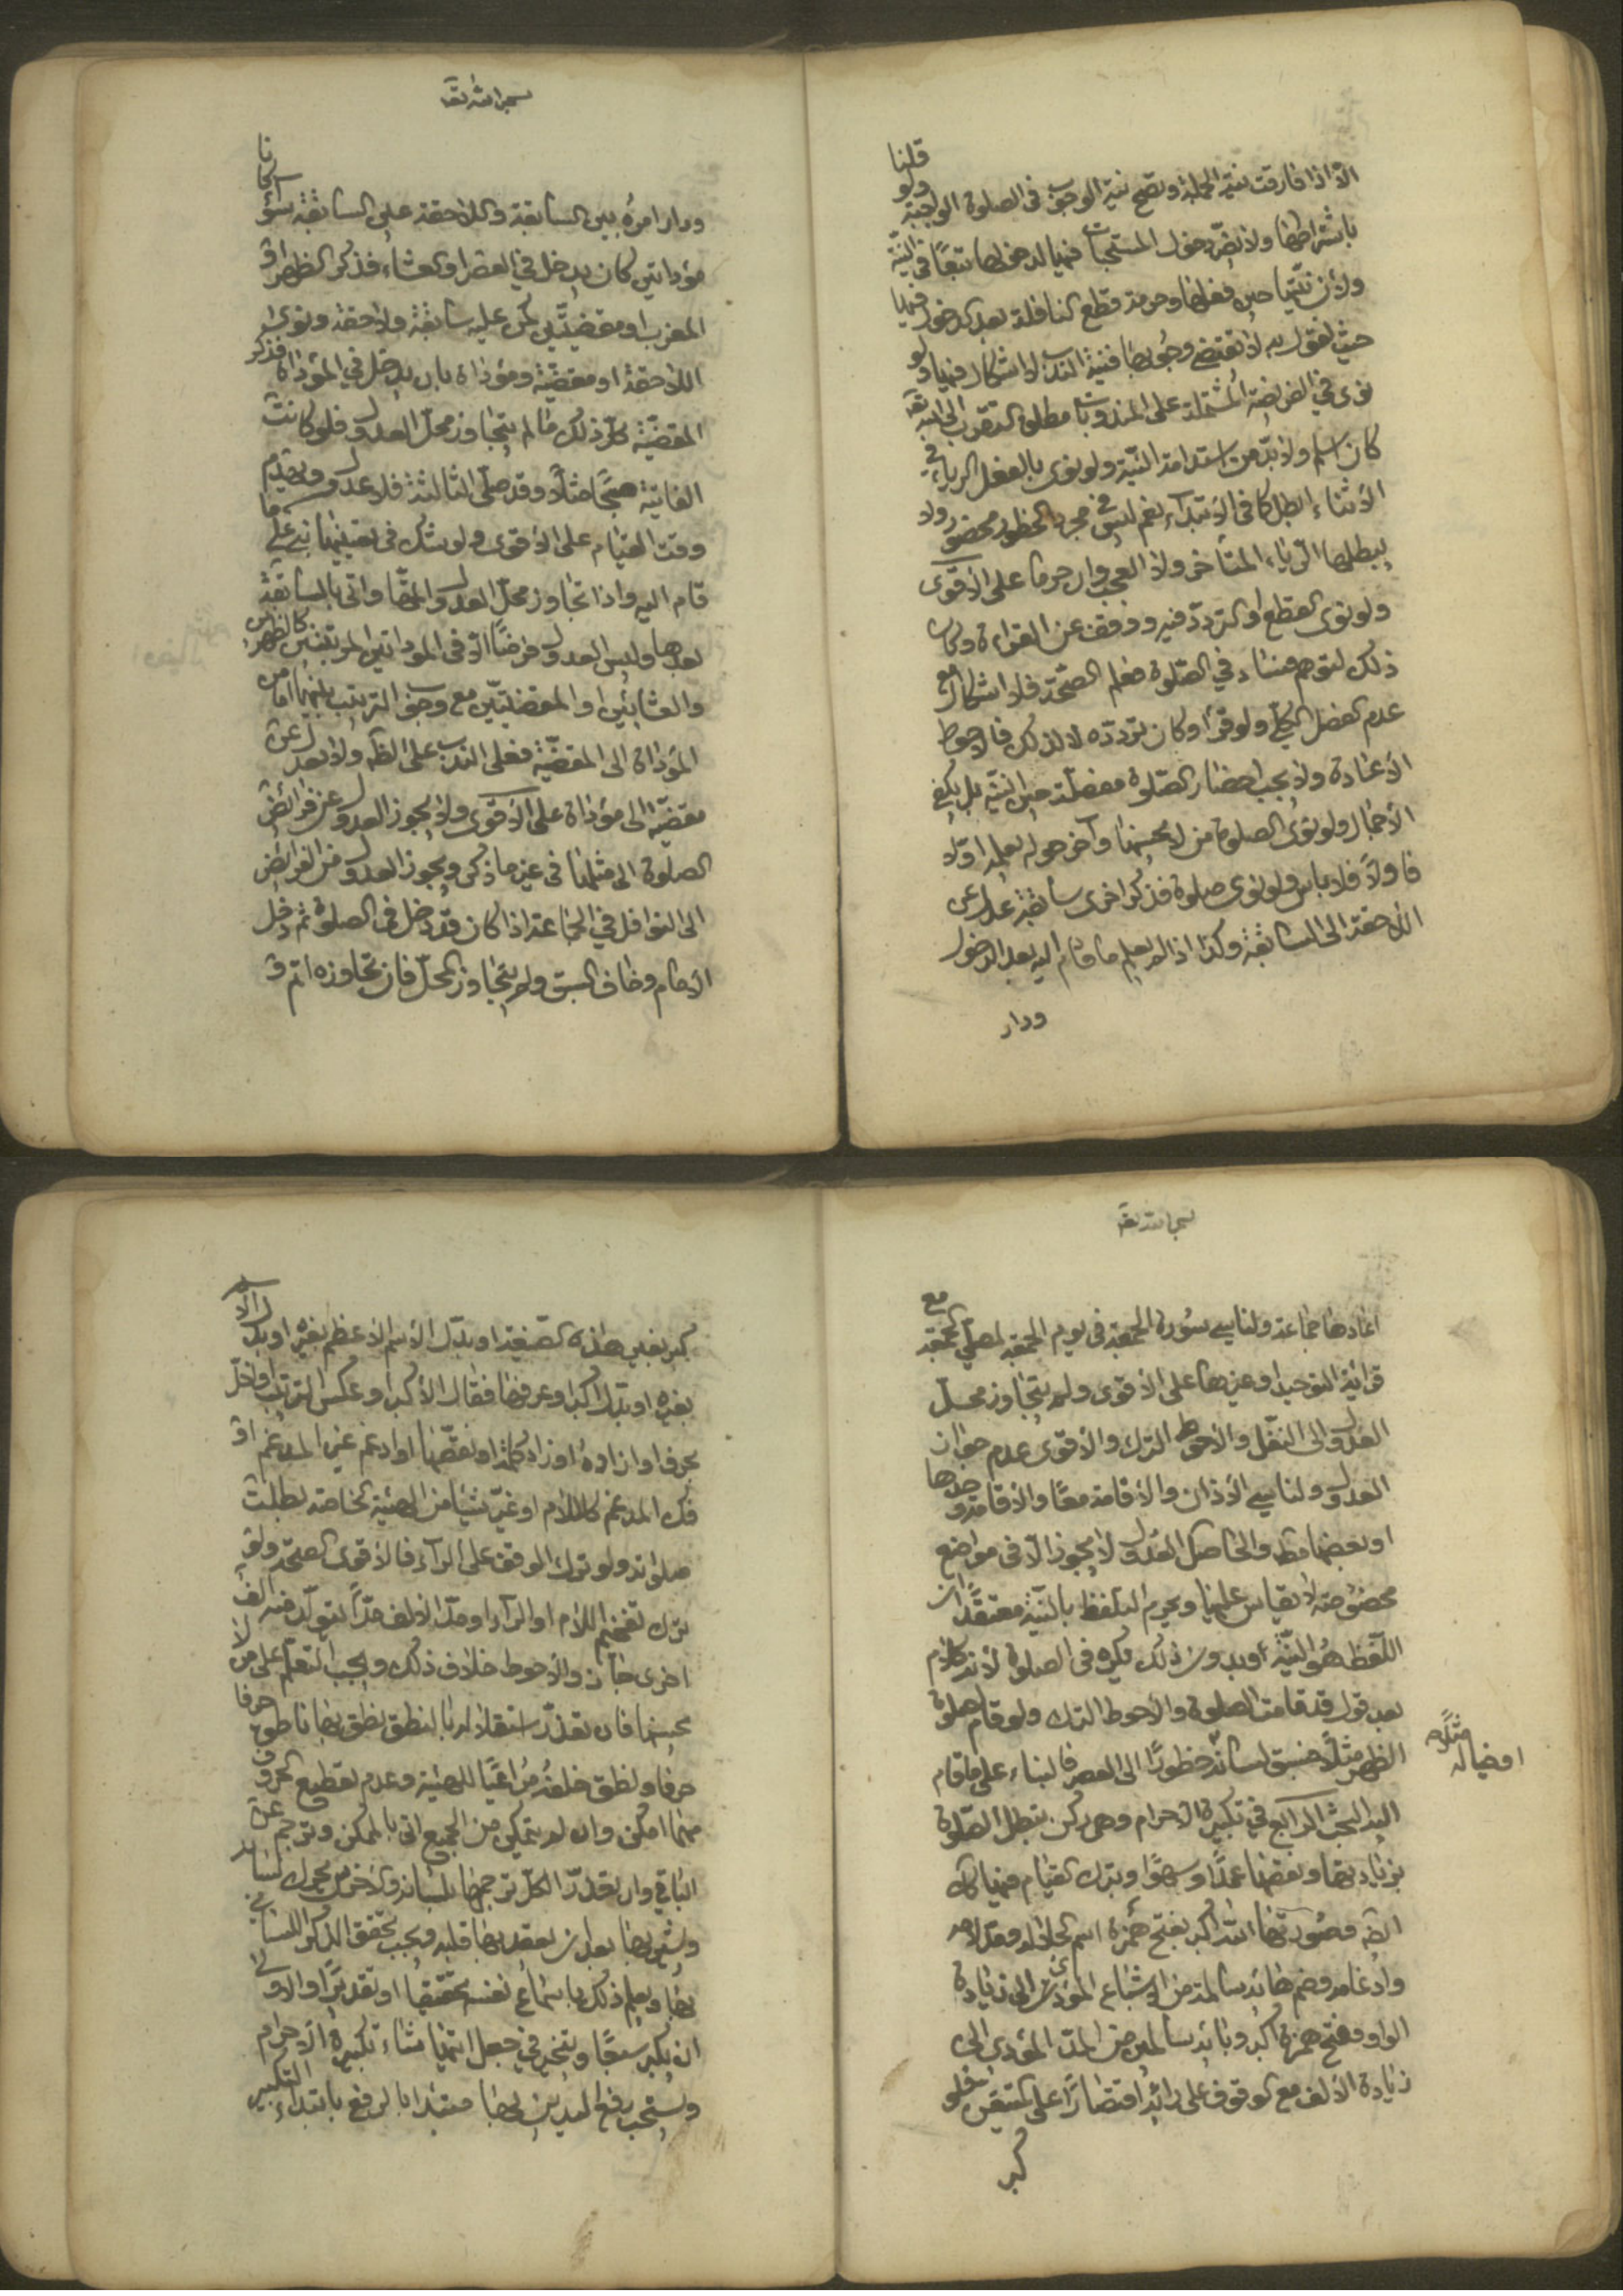 الا اذا فارقت نية الجملة وتصح نية الوجوب في الصلوة الواجبة ولو قلنا
باشتراطها ولا يضر دخول المستحبات فيها لدخولها تبعًا في النية
ولان نيتها حين فعلها وحرمة قطع النافلة بعد الدخول فيها
حيث نقول به لا تقتضي وجوبها فنية الندب لا اشكال فيها ولو
نوى في الفريضة المشتملة على المندوبات مطلق التقرب الى الله تع
كان اسلم ولا بد من استدامة النية ولو نوى بالفعل الرياء في
الاثناء بطل كما في الابتداء نعم ليس في مجرد الخطور محضور ولا
يبطلها الرياء المتأخر ولا العجب وان حرما على الاقوى
ولو نوى القطع او التردد فيه ووقف عن القراءة وكان
ذلك لتوهم فساد في الصلوة فعلم الصحة فلا اشكال مع
عدم الفصل المخل ولو قرأ وكان تردده لا لذلك فالاحوط
الاعادة ولا يجب احضار الصلوة مفصلة حين النية بل يكفي
الاجمال ولو نوى الصلوة من لا يحسنها وآخر حوله يعلمه اولا
فاولاً فلا باس ولو نوى صلوة فذكر اخرى سابقة عدل عن
اللاحقة الى السابقة وكذا اذا لم يعلم ما قام اليه بعد الدخول
ودار
بسم الله تعـ
ودار امره بين السابقة واللاحقة على السابقة سواء كانا
مؤداتين كان يدخل في العصر او العشاء فذكر الظهر او
المغرب او مقضيتين كمن عليه سابقة ولاحقة ونوى
اللاحقة او مقضية ومؤداة بان يدخل في المؤداة فذكر
المقضية كل ذلك ما لم يتجاوز محل العدول فلو كانت
الفائتة صبحًا مثلًا وقد صلى الثالثة فلا عدول ويقدم
وقت القيام على الاقوى ولو شك في تعيينها بنى على ما
قام اليه واذا تجاوز محل العدول اتمها واتى بالسابقة
بعدها وليس العدول فرضًا الا في المؤداتين المرتبتين كالظهرين
والعشائين او المقضيتين مع وجوب الترتيب بينهما اما من
المؤداة الى المقضية فعلى الندب على الظ ولا يعدل عن
مقضية الى مؤداة على الاقوى ولا يجوز العدول عن فرائض
الصلوة الى مثلها في غير ما ذكر ويجوز العدول من الفرائض
الى النوافل في الجماعة اذا كان قد دخل في الصلوة ثم دخل
الامام وخاف السبق ولم يتجاوز المحل فان تجاوزه اتم و
بسم الله تعـ
اعادها جماعة ولناسي سورة الجمعة في يوم الجمعة لمصلي الجمعة مع
قرائة التوحيد او غيرها على الاقوى ولم يتجاوز محل
العدول الى النفل والاحوط الترك والاقوى عدم جواز
العدول ولناسي الاذان والاقامة معًا والاقامة وحدها
او بعضها فقط والحاصل العدول لا يجوز الا في مواضع
مخصوصة لا يقاس عليها ويحرم التلفظ بالنية معتقدًا ان
اللفظ هو النية وبدون ذلك يكره في الصلوة لانه كلام
بعد قول قد قامت الصلوة والاحوط الترك ولو قام لصلوة
الظهر مثلًا فسبق لسانه خطورًا الى العصر فالبناء على ما قام
او خياله مثلًا
اليه البحث الرابع في تكبيرة الاحرام وهي ركن تبطل الصلوة
بزيادتها ونقصها عمدًا وسهوًا وبترك القيام فيها كك
الظ وصورتها الله اكبر بفتح همزة اسم الجلالة ومد لامه
وادغامه وضم هائه سالمة من الاشباع المؤدي الى زيادة
الواو وفتح همزة اكبر وبائه سالمين من المد المؤدي الى
زيادة الالف مع الوقوف على رائه اقتصارًا على المتيقن فلو
كبر
كبر بغير هذه الصيغة او بدل الاسم الاعظم بغيره او بدل
بغيره او بدل اكبر او عرفها فقال الاكبر او عكس الترتيب او اخل
بحرف او ازاده او زاد كلمة او نقصها او ادغم غير المدغم او
فك المدغم كاللام او غير شيئا من الهيئة الخاصة بطلت
صلوته ولو ترك الوقف على الراء فالاقوى الصحة ولو
ترك تفخيم اللام او الراء او مد الالف مدًا يتولد منه الف
اخرى جاز والاحوط خلاف ذلك ويجب التعلم على من لا
يحسنها فان تعذر استقلاله بالنطق نطق بها ناطق حرفا
حرفا ونطق خلفه مراعيًا للهيئة وعدم تقطيع الحروف
مهما امكن وان لم يتمكن من الجميع اتى بالممكن وترجم عن
الباقي وان تعذر الكل ترجمها بلسانه والاخرس يحرك لسانه
ويشير بها بعد ان يعقد بها قلبه ويجب تحقق الذكر اللساني
بها ويعلم ذلك باسماع نفسه تحقيقًا او تقديرًا والاولى
ان يكبر سبعًا ويتخير في جعل ايتها شاء تكبيرة الاحرام
ويستحب رفع اليدين بها مبتدأ بالرفع بابتداء التكبير